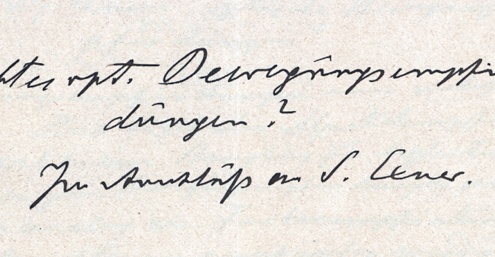 opt. Bewegungsempfin
dungen?
Im Anschluß an S. Exner.